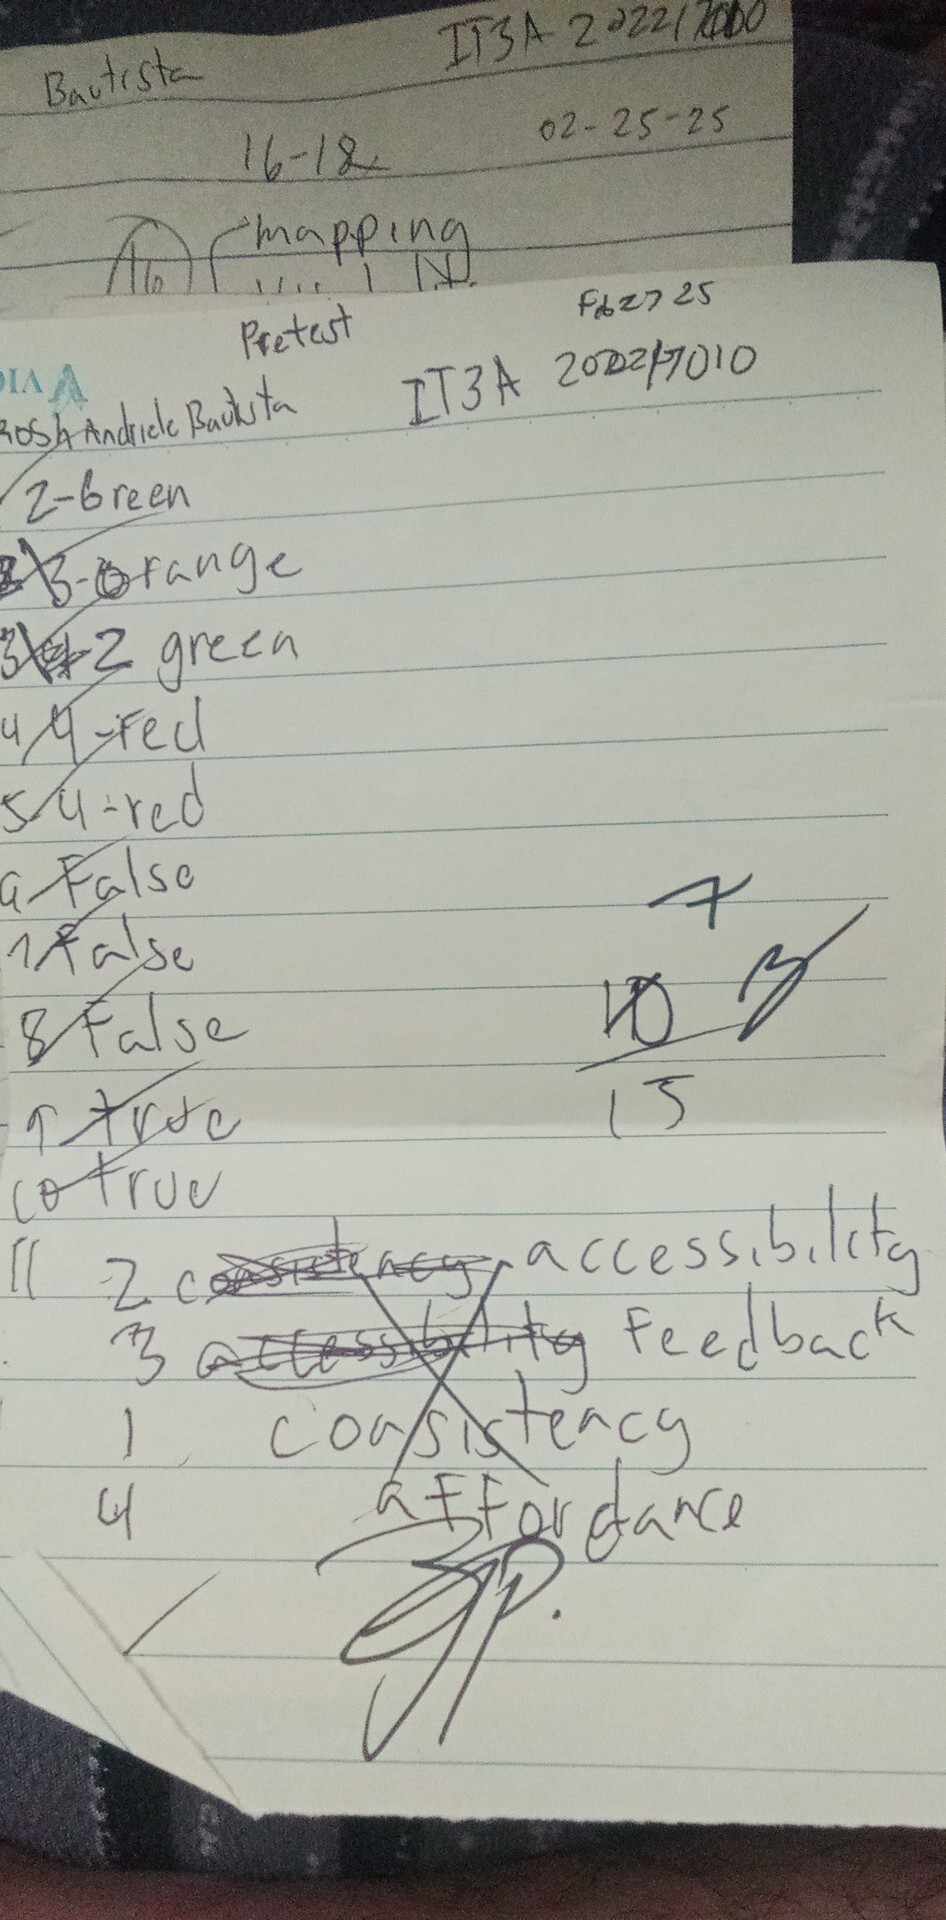 Bautista IT3A 2022/7010
16-18 02-25-25
16 mapping
Pretest Feb 27 25
VIA
Andriele Bautista IT3A 2022/7010
2-Green
2 3-orange
3 2 green
4 4-red
5 4-red
6 False
7 False
8 False
9 true
10 true
7
10
15
11 2 consistency accessibility
3 accessibility Feedback
1 consistency
4 affordance